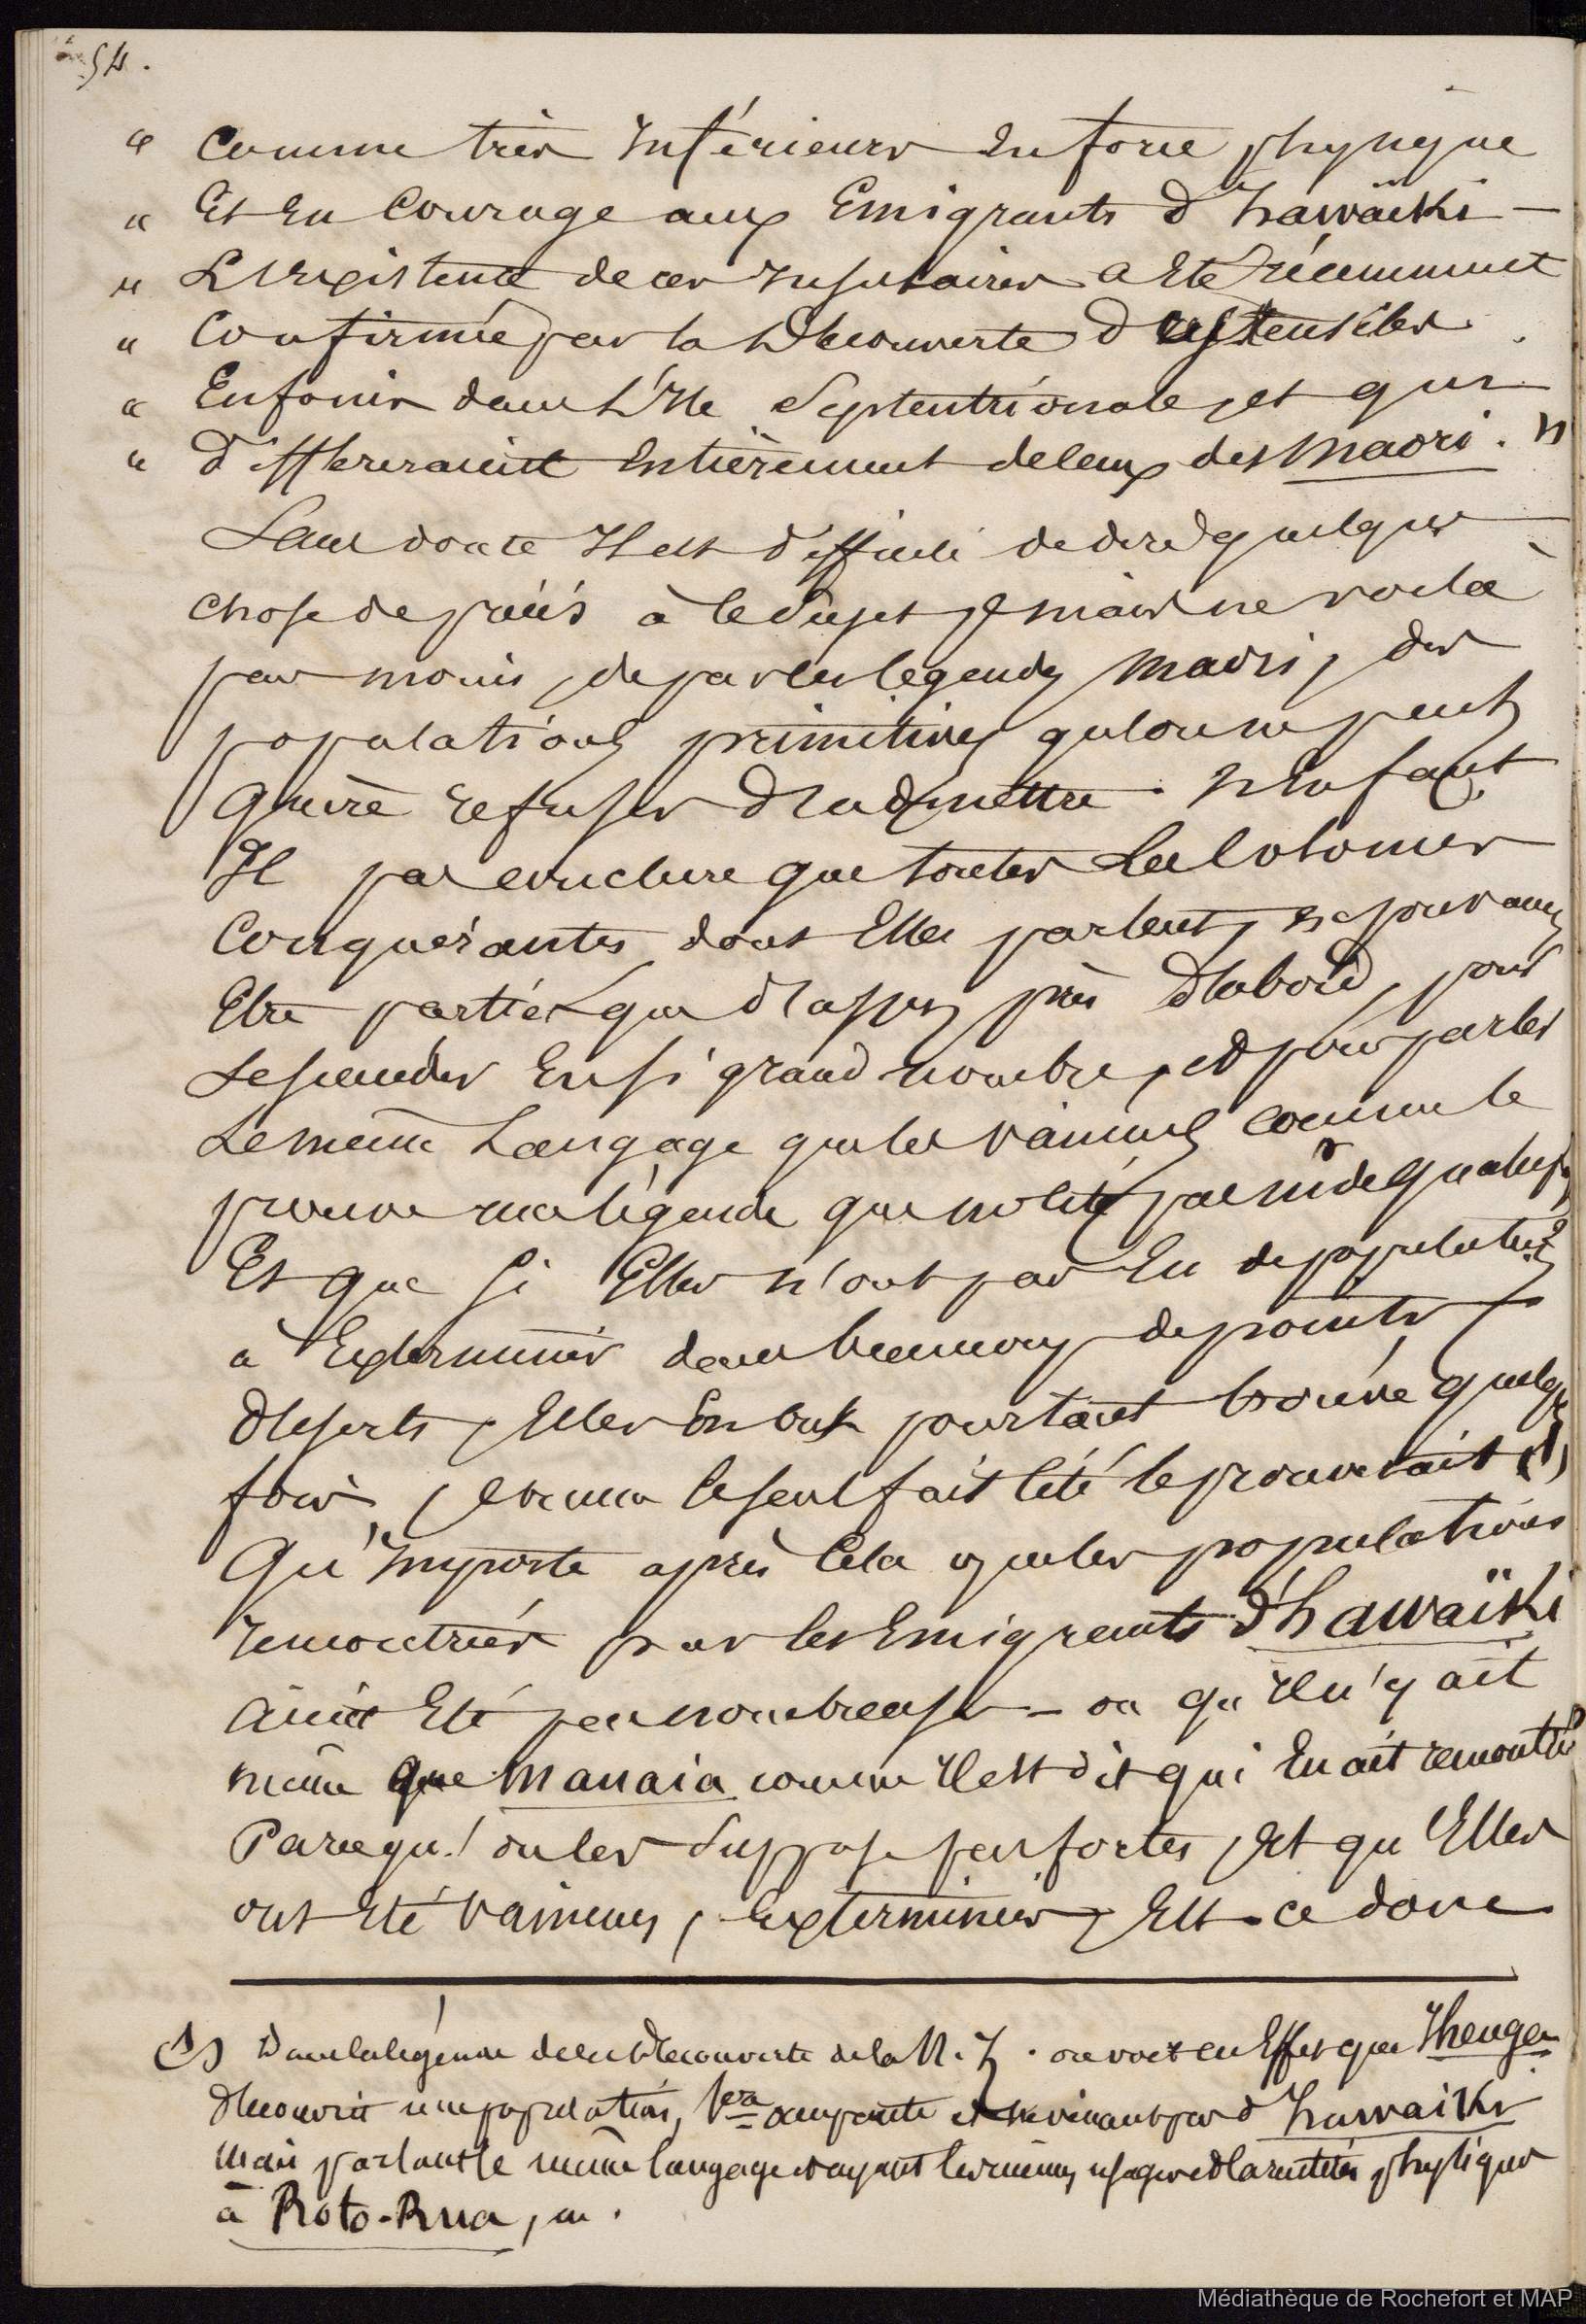 54.
« Comme très inférieurs en force physique
« Et en Courage aux Emigrants d'hawaïki —
« L'existence de ces insulaires a été récemment
« Confirmée par la découverte d'ustensiles
« Enfouis dans l'Ile Septentrionale, et qui
« différeraient entièrement de ceux des Maori. »
Sans doute Il est difficile de dire quelque
chose de précis à ce sujet, mais ne voilà
pas moins, de par les légendes Maori, des
populations primitives qu'on ne peut
guère refuser d'admettre. N'en faut
Il pas conclure que toutes les Colonies
Conquérantes dont Elles parlent, ne pouvaient
Etre parties que d'assez près d'abord, pour
Se succéder en si grand nombre, et pour parler
Le même Langage que les vaincus comme le
prouve une légende que
Et que si Elles n'ont pas Eu de populations
à Exterminer dans beaucoup de points
déserts, Elles en ont pourtant trouvé quelque
fois, comme le seul fait cité le prouverait (1)
Qu'importe après Cela que les populations
rencontrées par les Emigrants d'hawaïki
Aient Eté peu nombreuses — ou qu'Il n'y ait
même que Manaia comme Il est dit qui En ait rencontré
Parce qu'on les suppose peu fortes, Et qu'Elles
ont Eté vaincues, Exterminées, Est-ce donc
(1) Dans la légende de la découverte de la N. Z. on voit en Effet que Ihenga
découvrit une population, 1ère occupante et ne venant pas d'hawaiki
mais parlant le même langage et ayant les mêmes usages et caractères physiques
à Roto-Rua,